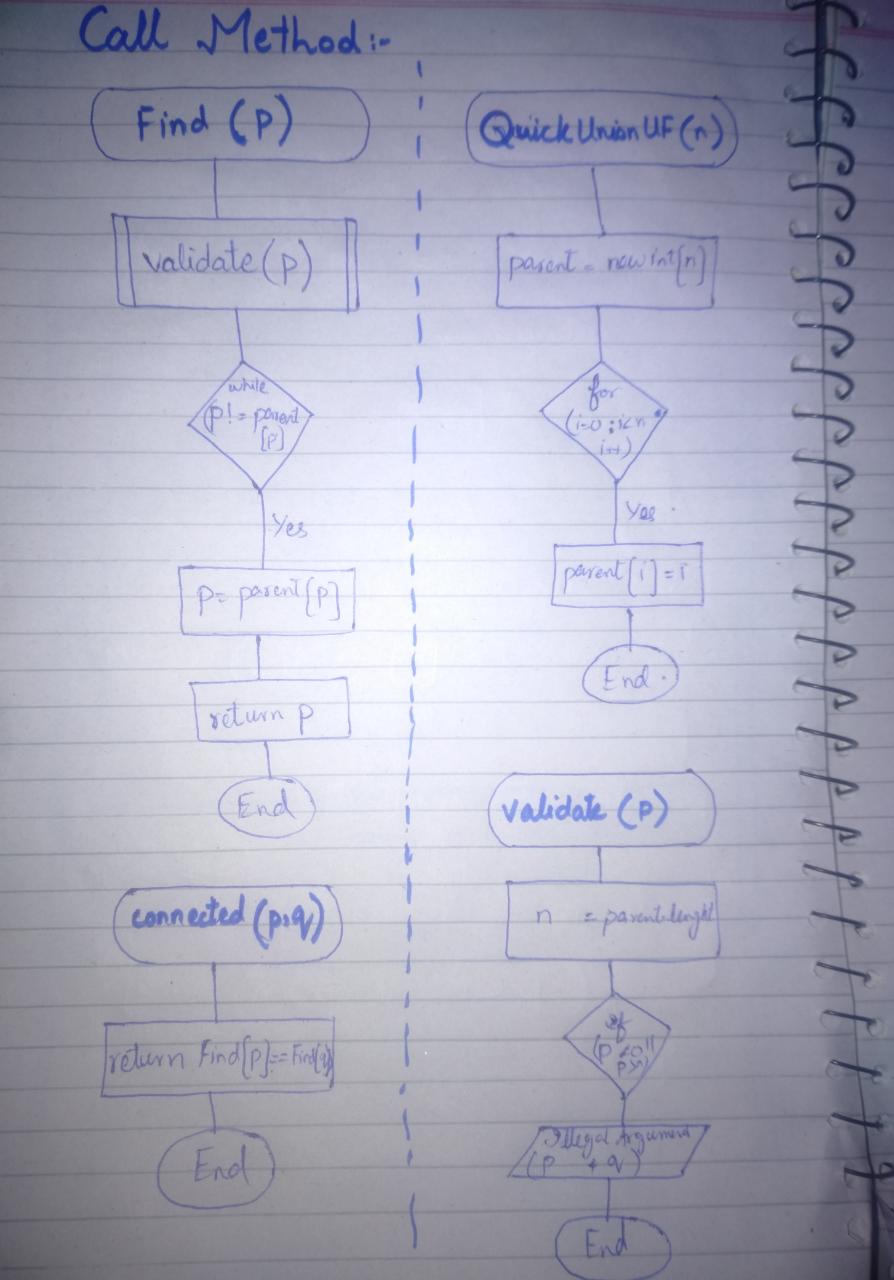 Call Method:-
Find (P)
validate(p)
while
(p! = parent
[p]
Yes
P= parent[p]
return p
End
connected(p,q)
return Find[p]==Find(q)
End
QuickUnionUF(n)
parent = new int[n]
for
(i=0 ; i<n
i++)
Yes.
parent[i]=i
End.
validate (p)
n = parent.lenght
if
(p <0 ||
p>n)
Illegal Argument
(p + q)
End